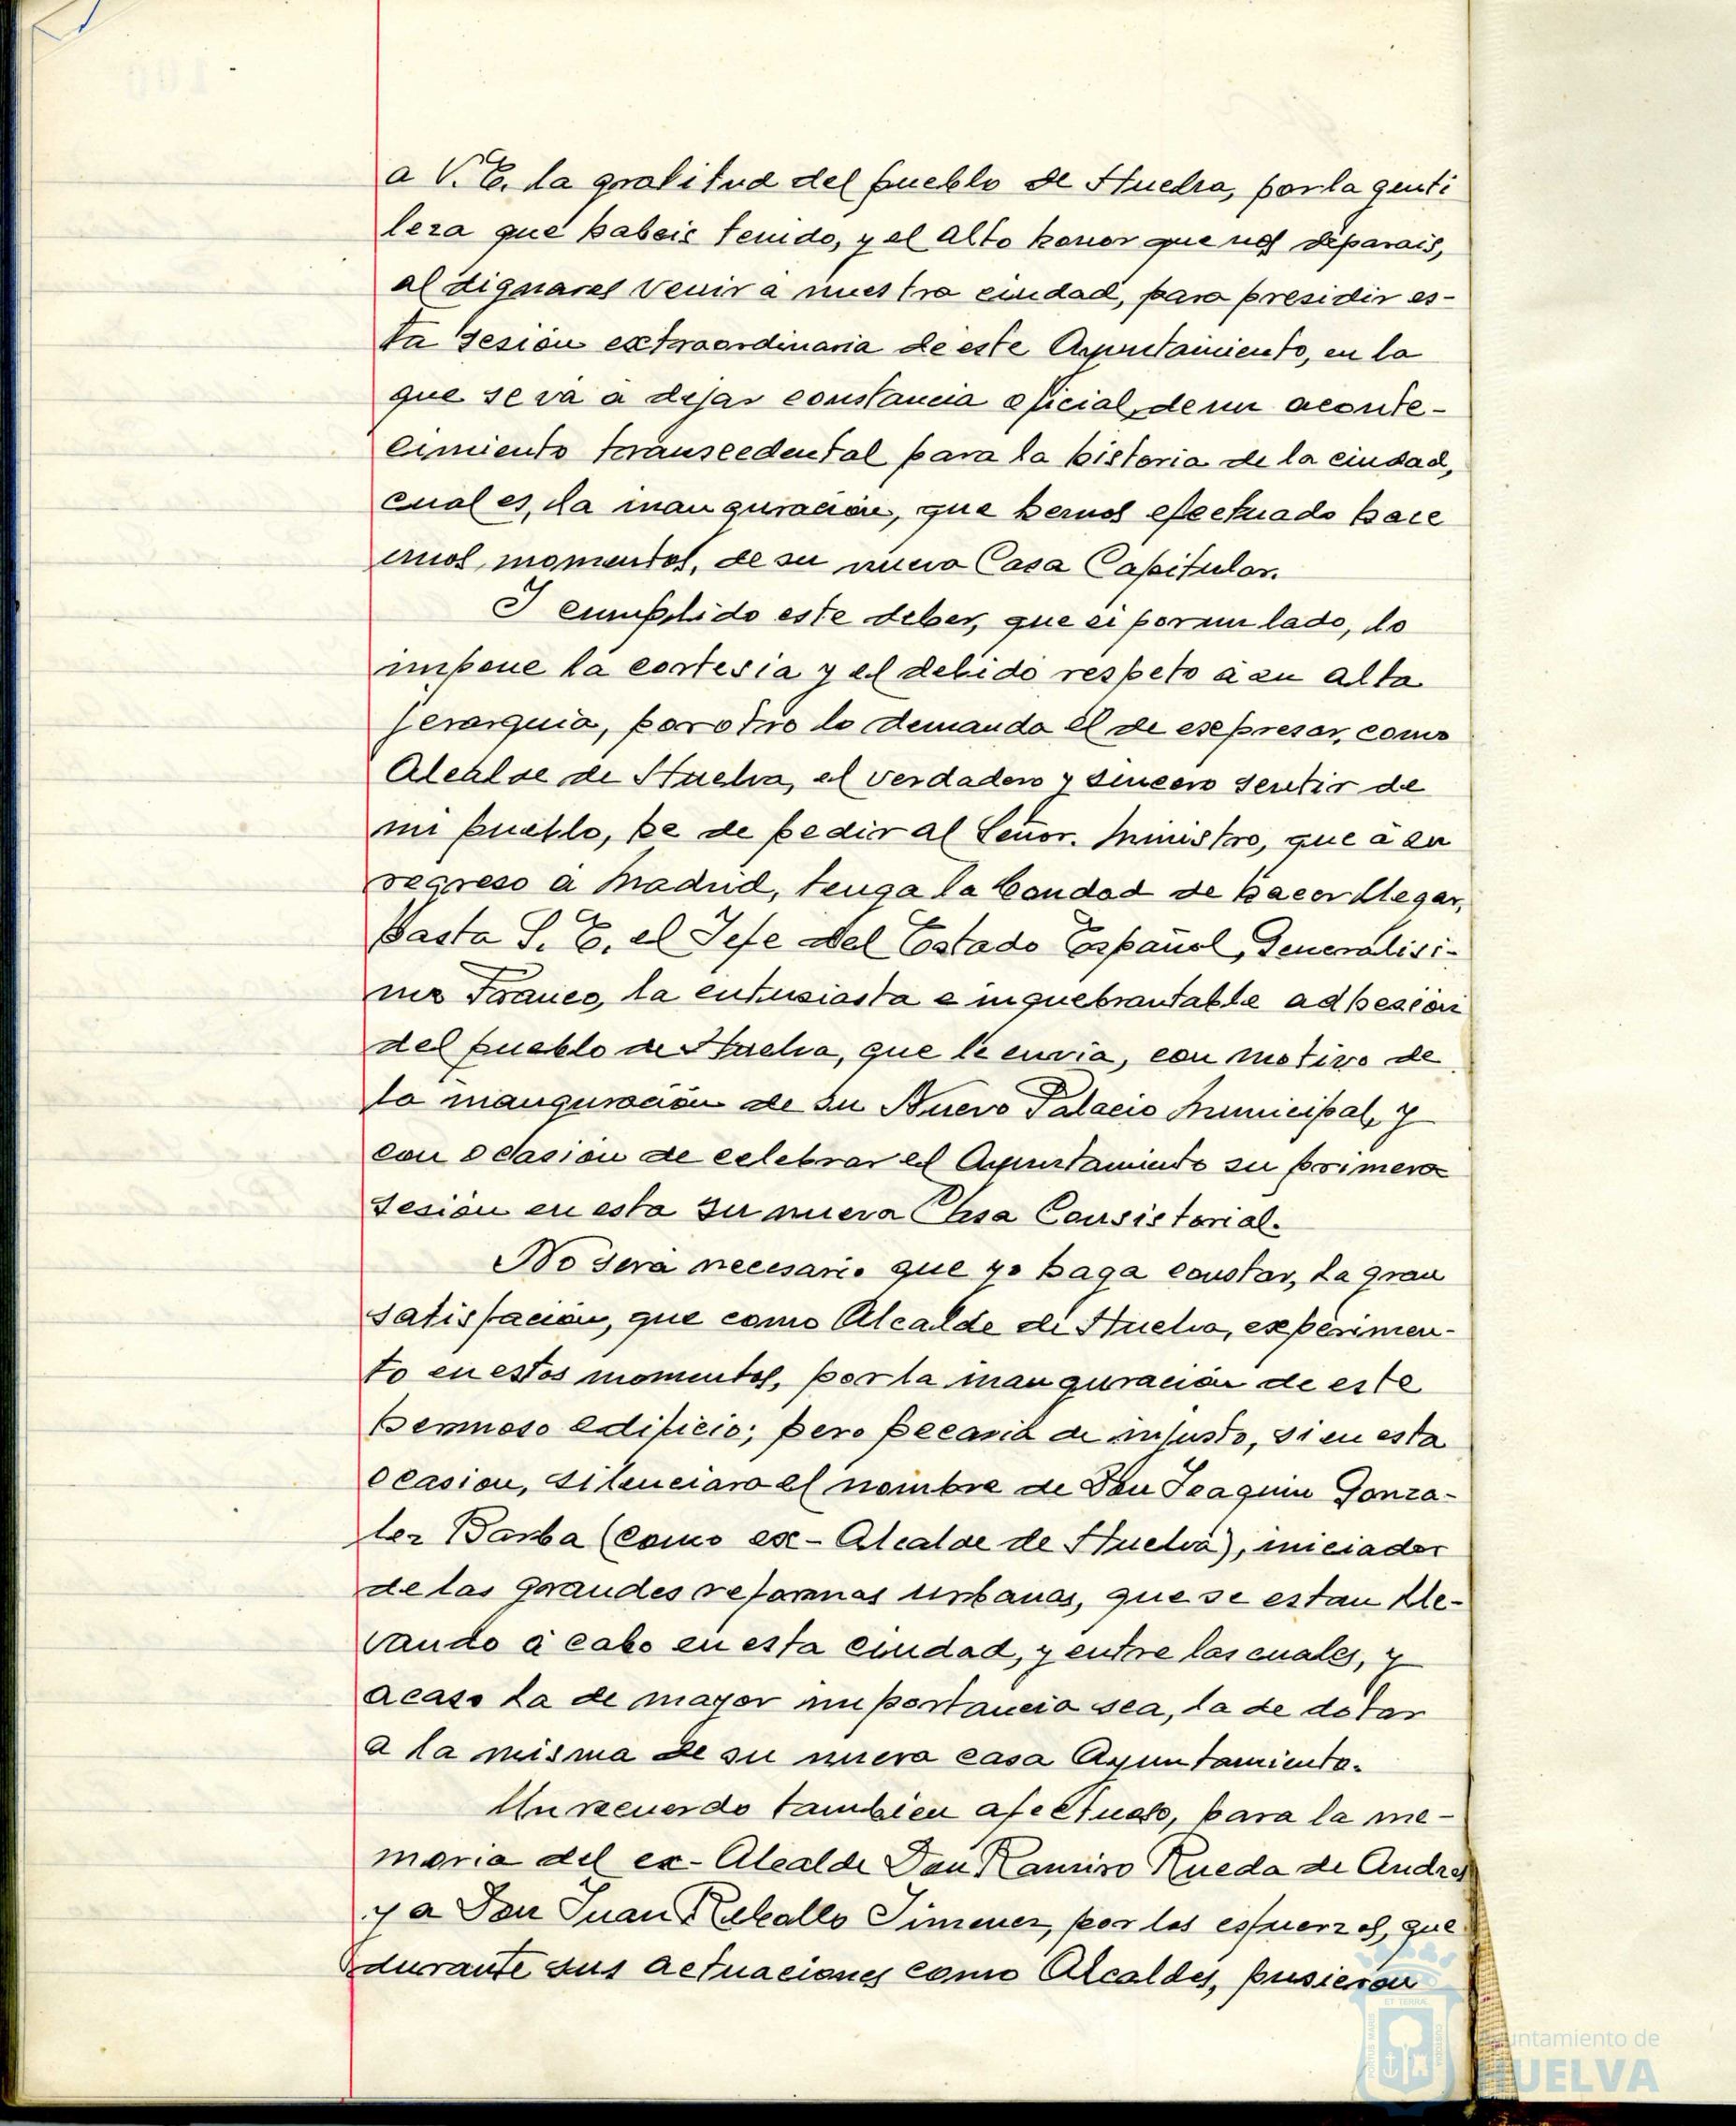 a V. E. la gratitud del pueblo de Huelva, por la genti
leza que habeis tenido, y el alto honor que nos deparais,
al dignaros venir a nuestra ciudad, para presidir es-
ta sesión extraordinaria de este Ayuntamiento, en la
que se va a dejar constancia oficial, de un aconte-
cimiento transcedental para la historia de la ciudad,
cual es, la inauguración, que hemos efectuado hace
unos momentos, de su nueva Casa Capitular.
I cumplido este deber, que si por un lado, lo
impone la cortesia y el debido respeto a su alta
jerarquia, por otro lo demanda el de expresar, como
Alcalde de Huelva, el verdadero y sincero sentir de
mi pueblo, he de pedir al Señor. Ministro, que a su
regreso a Madrid, tenga la bondad de hacer llegar,
hasta S. E. el Jefe del Estado Español, Generalisi-
mo Franco, la entusiasta e inquebrantable adhesión
del pueblo de Huelva, que le envia, con motivo de
la inauguración de su Nuevo Palacio Municipal, y
con ocasión de celebrar el Ayuntamiento su primera
sesión en esta su nueva Casa Consistorial.
No será necesario que yo haga constar, la gran
satisfación, que como Alcalde de Huelva, experimen-
to en estos momentos, por la inauguración de este
hermoso edificio; pero pecaria de injusto, si en esta
ocasion, silenciara el nombre de Don Joaquin Gonza-
lez Barba (como ex-Alcalde de Huelva), iniciador
de las grandes reformas urbanas, que se estan lle-
vando a cabo en esta ciudad, y entre las cuales, y
acaso la de mayor importancia sea, la de dotar
a la misma de su nueva casa Ayuntamiento.
Un recuerdo tambien afectuoso, para la me-
moria del ex-Alcalde Don Ramiro Rueda de Andres
y a Don Juan Rebollo Jimenez, por los esfuerzos, que
durante sus actuaciones como Alcaldes, pusieron
Ayuntamiento de
HUELVA